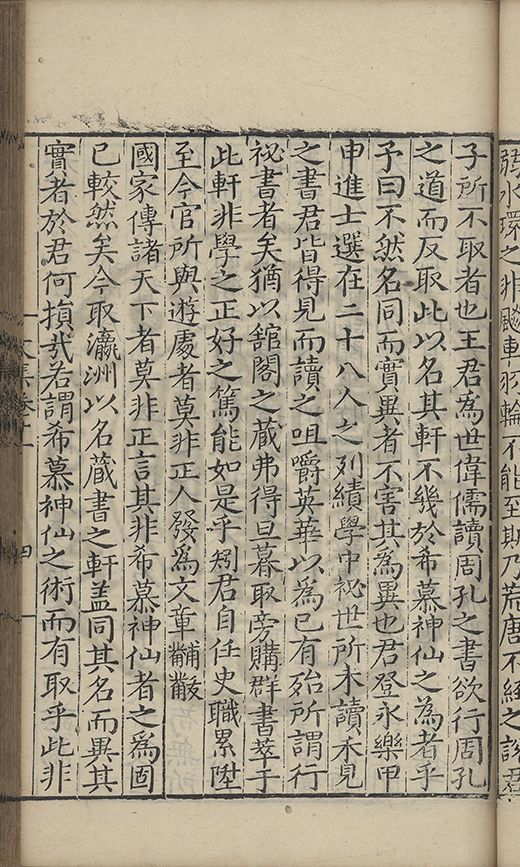 弱水環之非飈車羽輪不能至斯乃荒唐不經之說君
子所不取者也王君為世偉儒讀周孔之書欲行周孔
之道而反取此以名其軒不幾於希慕神仙之為者乎
予曰不然名同而實異者不害其為異也君登永樂甲
申進士選在二十八人之列績學中祕世所未讀未見
之書君皆得見而讀之咀嚼英華以為已有殆所謂行
祕書者矣猶以舘閣之蔵弗得旦暮取旁購群書萃于
此軒非學之正好之篤能如是乎矧君自任史職累陞
至今官所與遊處者莫非正人發為文章黼黻
國家傳諸天下者莫非正言其非希慕神仙者之為固
已較然矣今取瀛洲以名蔵書之軒盖同其名而異其
實者於君何損㢤若謂希慕神仙之術而有取乎此非
文集卷十一
四